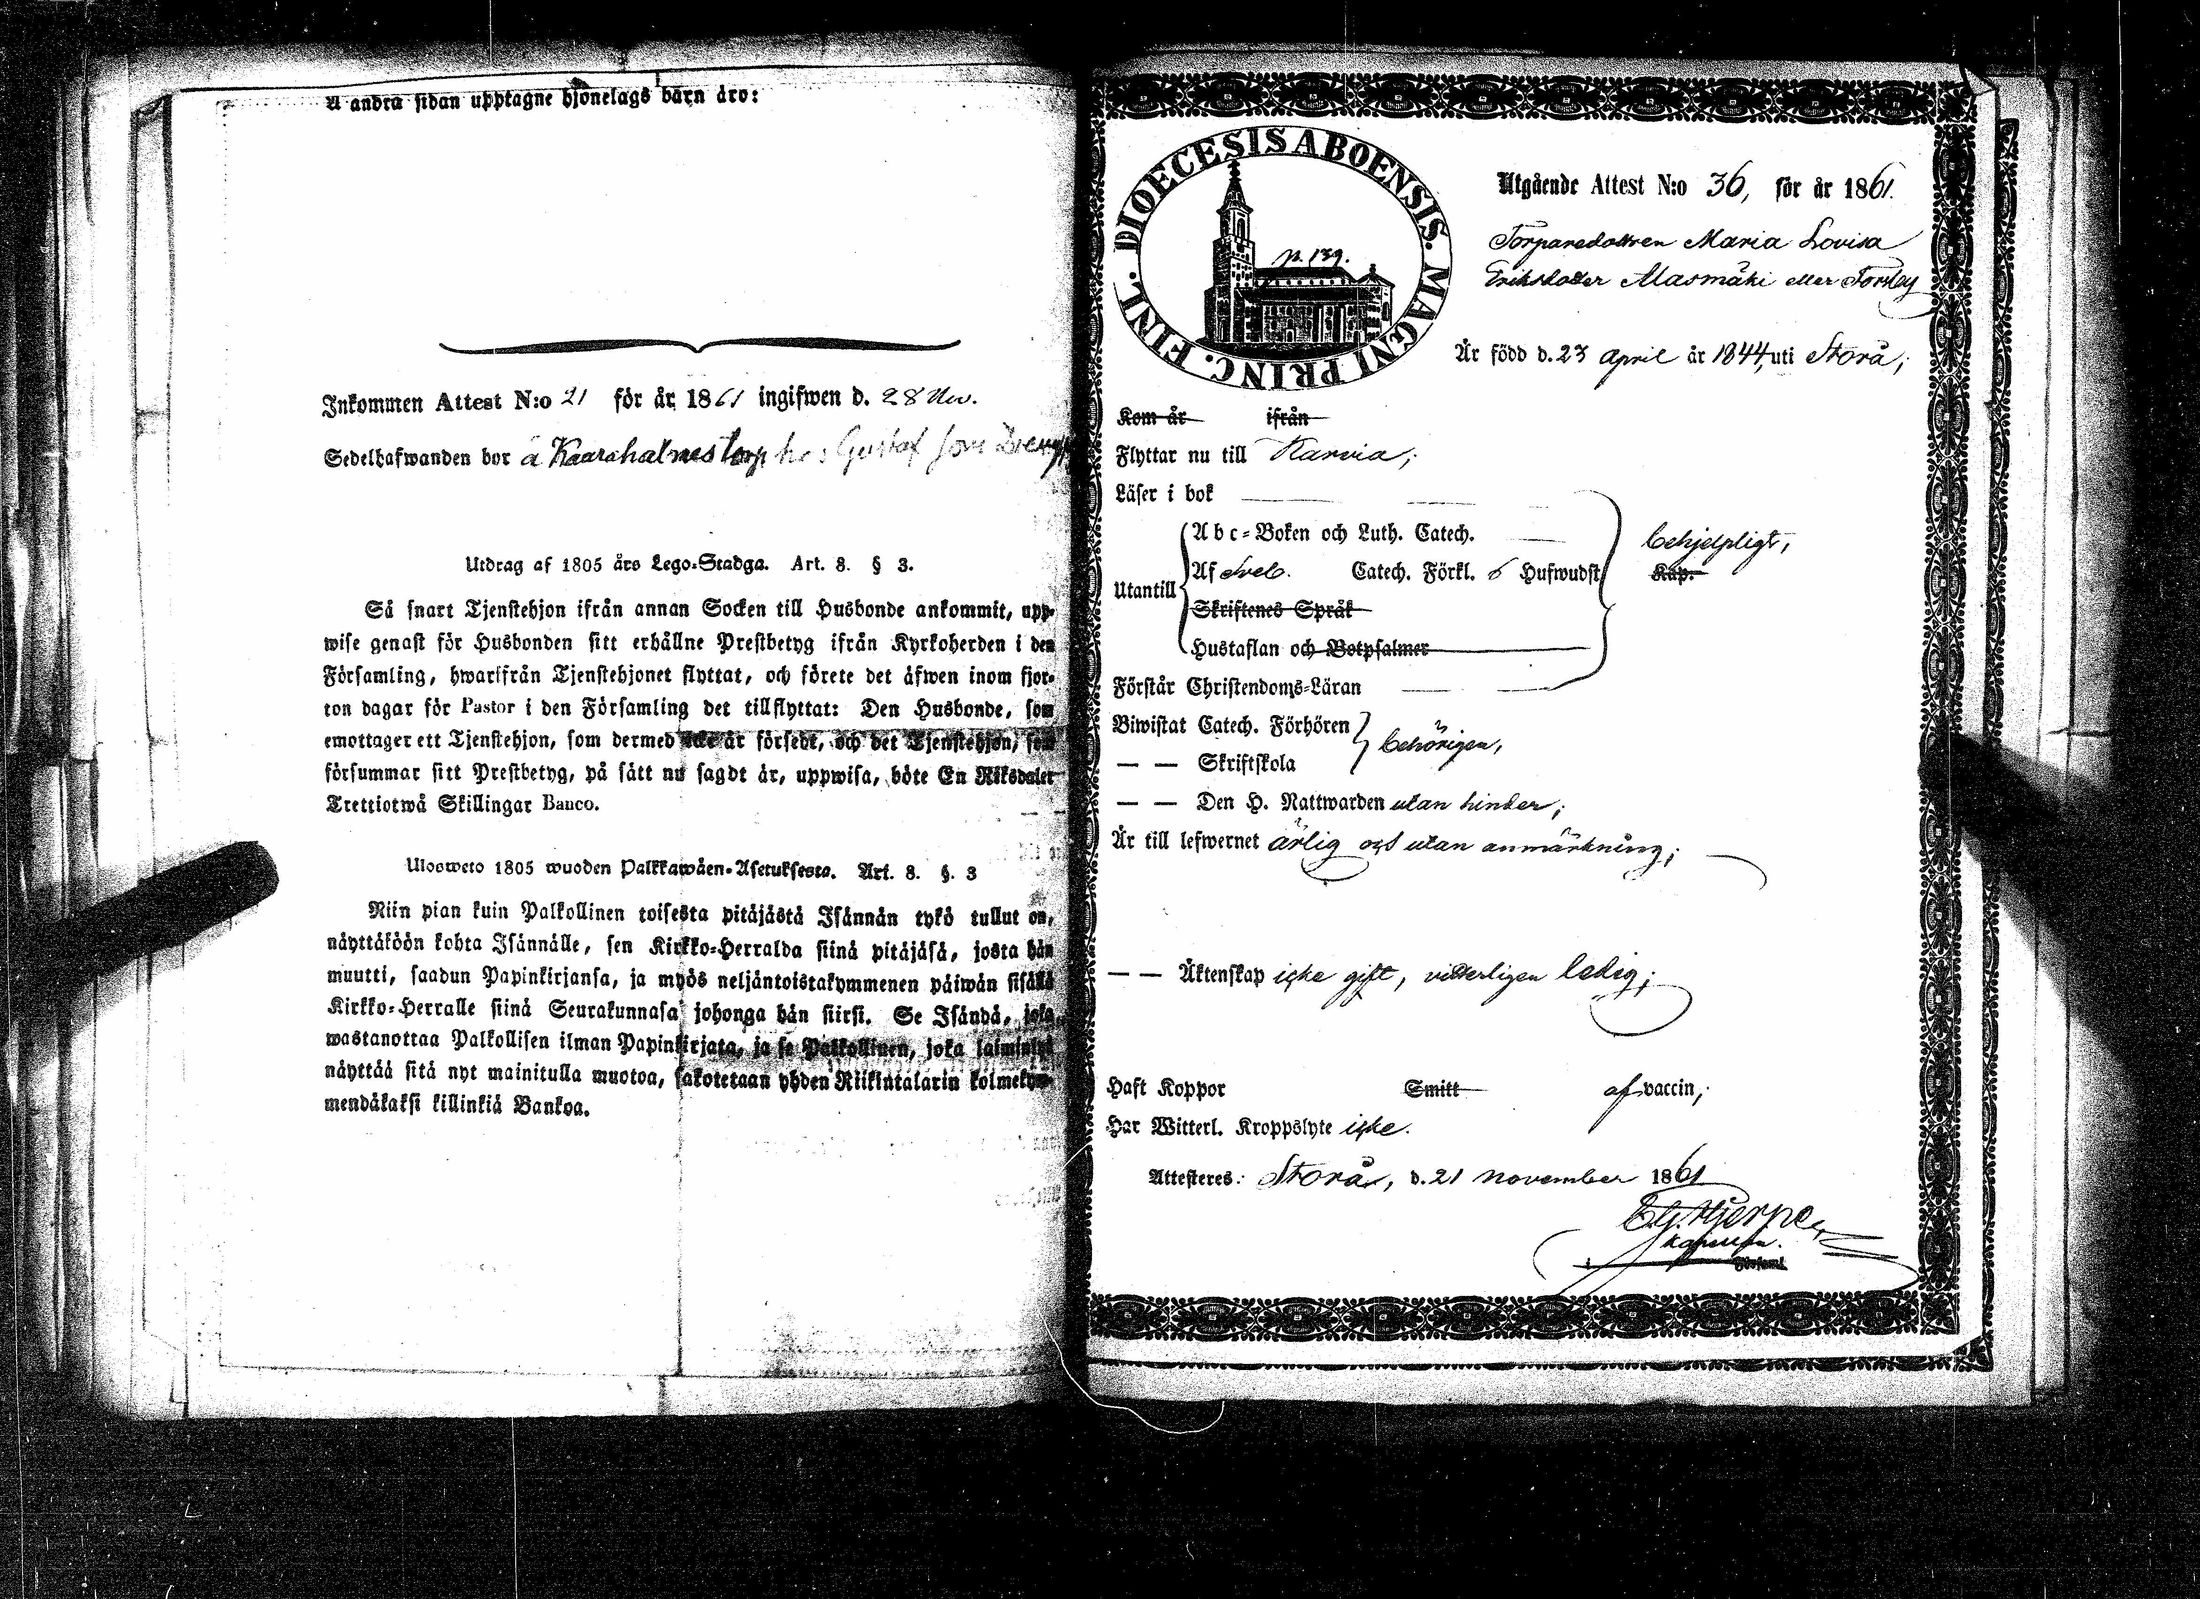 Å andra sidan upptagne hjonelags barn äro:
Inkommen Attest N:o 21 för år 1861 ingifwen d. 28 Nov.
Sedelhafwanden bor å Kaarahalmes torp hos Gustaf som
Utdrag af 1805 års Lego-Stadga. Art. 8. § 3.
Så snart Tjenstehjon ifrån annan Socken till Husbonde ankommit, upp-
wise genast för Husbonden sitt erhållne Prestbetyg ifrån Kyrkoherden i den
Församling, hwarifrån Tjenstehjonet flyttat, och förete det äfwen inom fjor-
ton dagar för Pastor i den Församling det tillflyttat: Den Husbonde, som
emottager ett Tjenstehjon, som dermed icke är försedt, och det Tjenstehjon, som
försummar sitt Prestbetyg, på sätt nu sagdt är, uppwisa, böte En Riksdaler
Trettiotwå Skillingar Banco.
Ulosweto 1805 wuoden Palkkawäen-Asetuksesta. Art. 8. §. 3
Niin pian kuin Palkollinen toisesta pitäjästä Isännän tykö tullut on,
näyttäköön kohta Isännälle, sen Kirkko-Herralda siinä pitäjäsä, josta hän
muutti, saadun Papinkirjansa, ja myös neljäntoistakymmenen päiwän sisällä
Kirkko-Herralle siinä Seurakunnasa johonga hän siirsi. Se Isändä, joka
wastanottaa Palkollisen ilman Papinkirjata, ja se Palkollinen, joka laiminlyö
näyttää sitä nyt mainitulla muotoa, sakotetaan yhden Riikintalarin kolmekym-
mendäkaksi killinkiä Bankoa.
DIOECESIS ABOENSIS. MAGNI PRINC. FINL.
p. 139.
Utgående Attest N:o 36, för år 1861.
Torparedottren Maria Lovisa
Eriksdotter Masmäki eller Forsby
Är född d. 23 April år 1844, uti Storå;
Kom år ifrån
Flyttar nu till Karvia;
Läser i bok
Abc-Boken och Luth. Catech.
behjelpligt,
Utantill
Af Sveb. Catech. Förkl. 6 Hufwudst Kap.
Skriftenes Språk
Hustaflan och Botpsalmer
Förstår Christendoms-Läran
Biwistat Catech. Förhören
behörigen,
— — Skriftskola
— — Den H. Nattwarden utan hinder;
Är till lefwernet ärlig och utan anmärkning;
— — Äktenskap icke gift, vitterligen ledig;
Haft Koppor Smitt af vaccin;
Har Witterl. Kroppslyte icke.
Attesteres: Storå, d. 21 november 1861
E.G. Hjerpe,
Kapellan.
Församl.